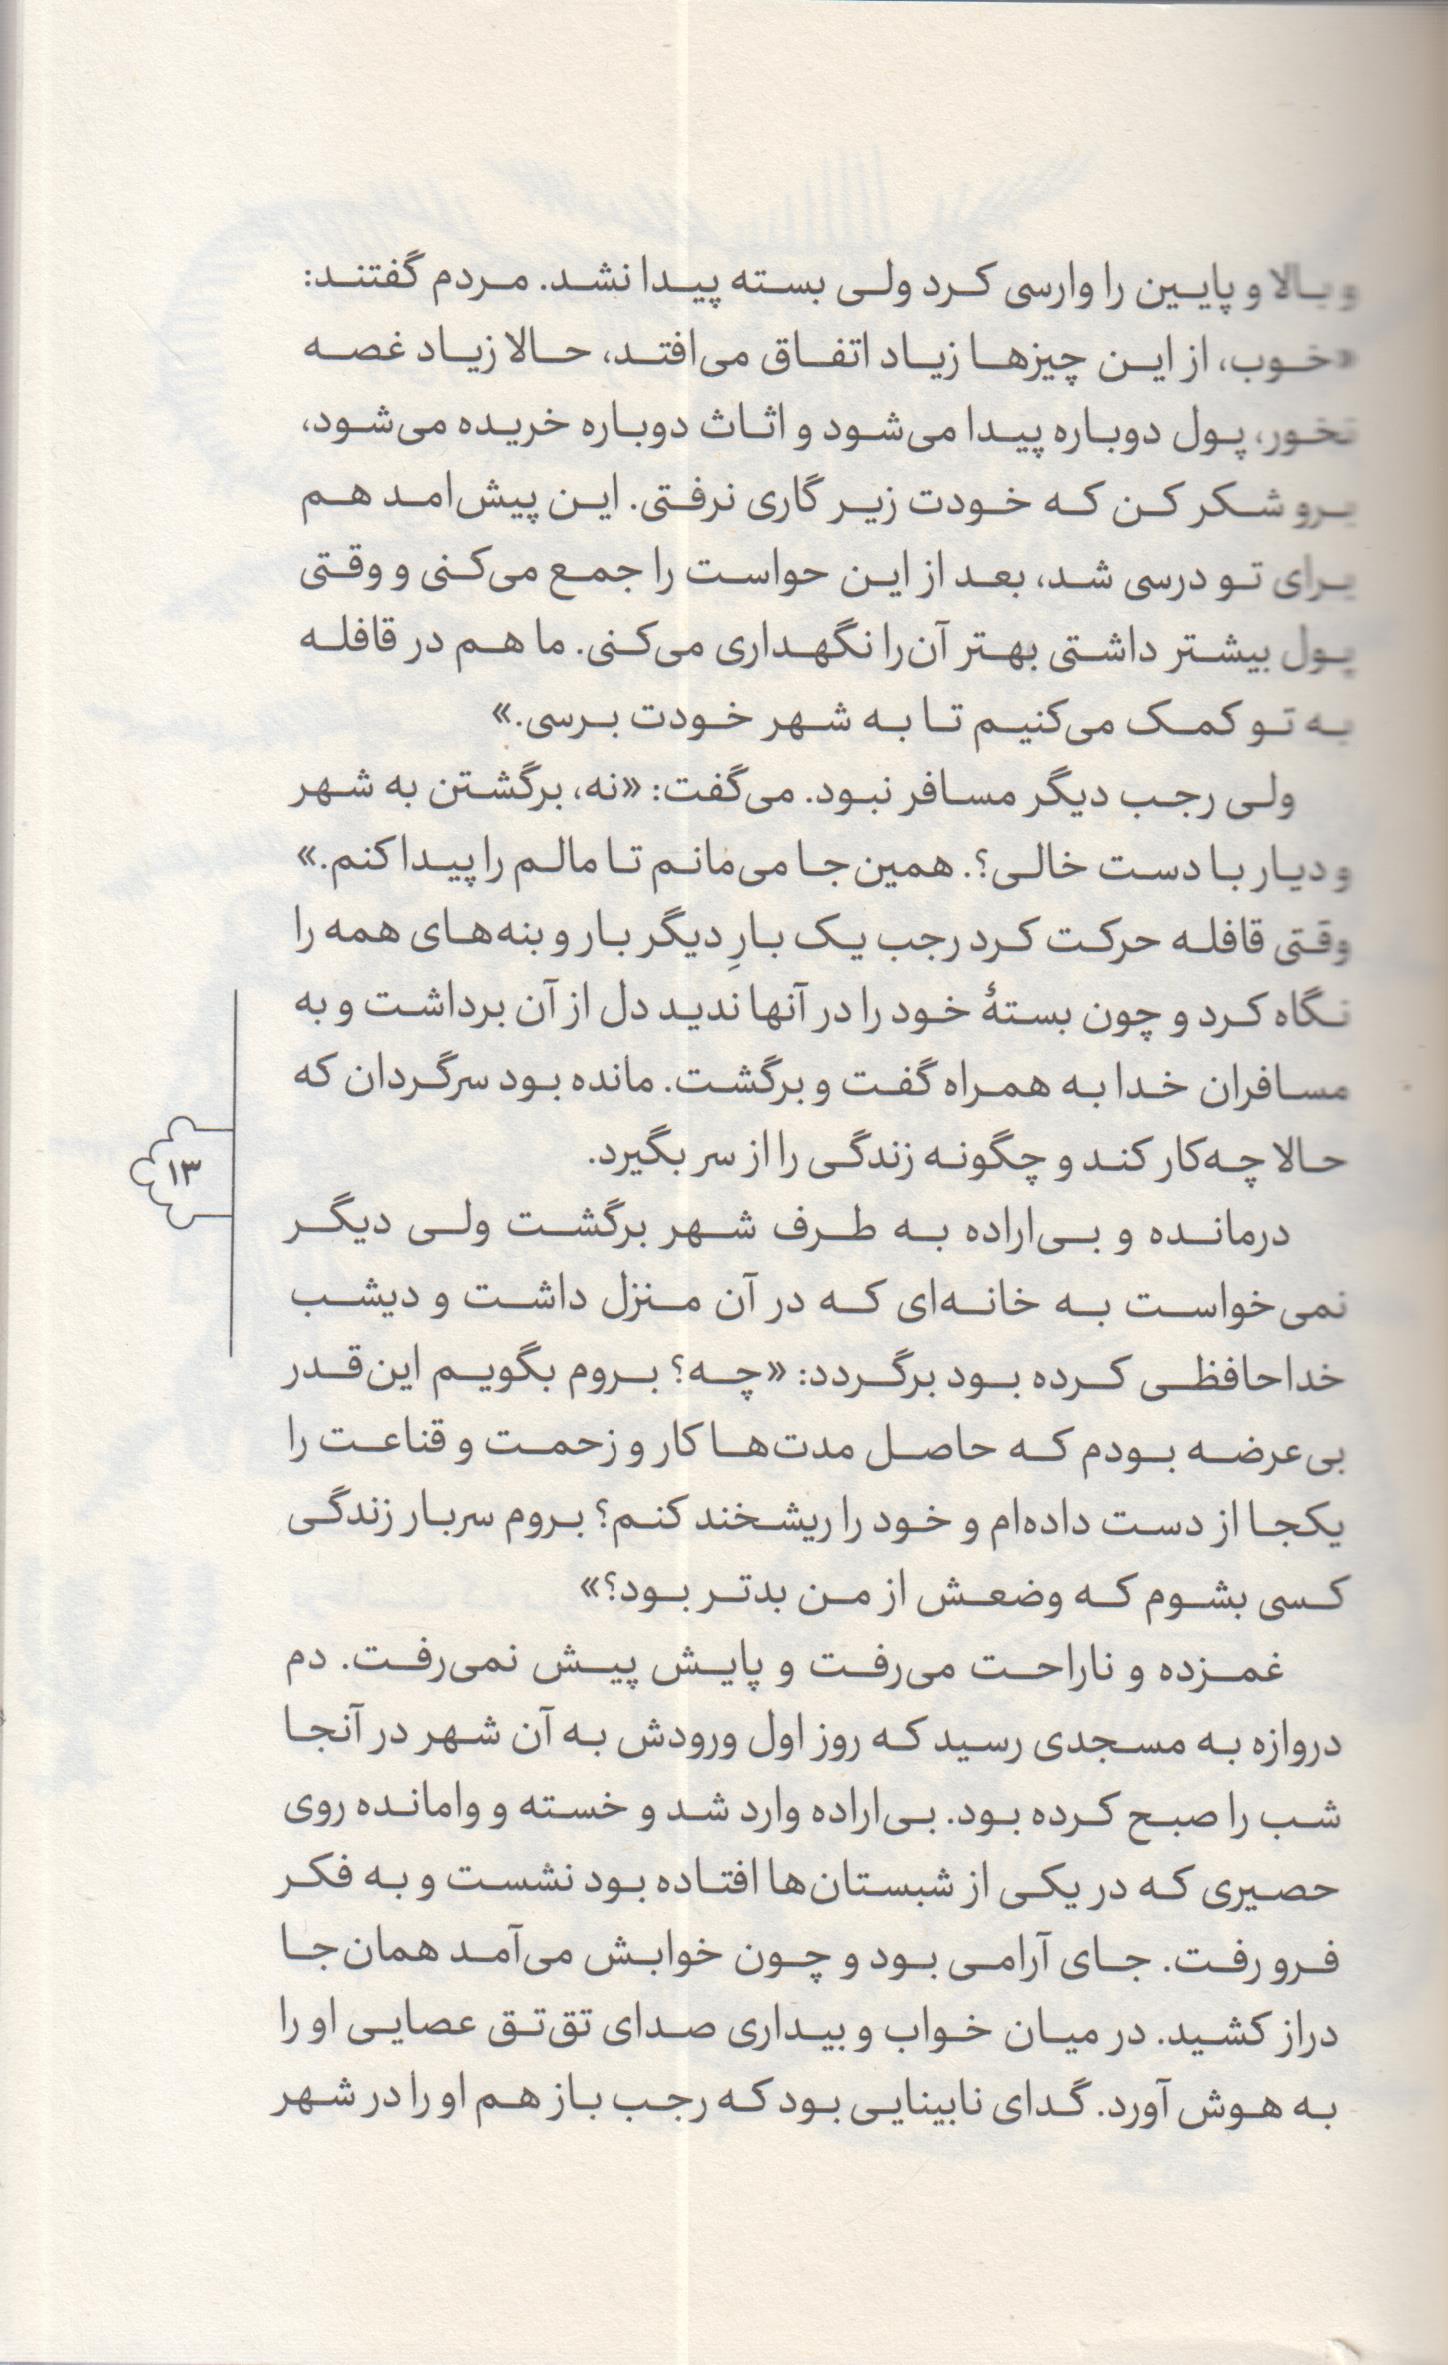 و بالا و پایین را وارسی کرد ولی بسته پیدا نشد. مردم گفتند:
«خوب، از این چیزها زیاد اتفاق می‌افتد، حالا زیاد غصه
نخور، پول دوباره پیدا می‌شود و اثاث دوباره خریده می‌شود،
برو شکر کن که خودت زیر گاری نرفتی. این پیش‌امد هم
برای تو درسی شد، بعد از این حواست را جمع می‌کنی و وقتی
پول بیشتر داشتی بهتر آن‌را نگهداری می‌کنی. ما هم در قافله
به تو کمک می‌کنیم تا به شهر خودت برسی.»
ولی رجب دیگر مسافر نبود. می‌گفت: «نه، برگشتن به شهر
و دیار با دست خالی؟. همین‌جا می‌مانم تا مالم را پیدا کنم.»
وقتی قافله حرکت کرد رجب یک بارِ دیگر بار و بنه‌های همه را
نگاه کرد و چون بستهٔ خود را در آنها ندید دل از آن برداشت و به
مسافران خدا به همراه گفت و برگشت. مانده بود سرگردان که
حالا چه‌کار کند و چگونه زندگی را از سر بگیرد.
درمانده و بی‌اراده به طرف شهر برگشت ولی دیگر
نمی‌خواست به خانه‌ای که در آن منزل داشت و دیشب
خداحافظی کرده بود برگردد: «چه؟ بروم بگویم این‌قدر
بی‌عرضه بودم که حاصل مدت‌ها کار و زحمت و قناعت را
یکجا از دست داده‌ام و خود را ریشخند کنم؟ بروم سربار زندگی
کسی بشوم که وضعش از من بدتر بود؟»
غمزده و ناراحت می‌رفت و پایش پیش نمی‌رفت. دم
دروازه به مسجدی رسید که روز اول ورودش به آن شهر در آنجا
شب را صبح کرده بود. بی‌اراده وارد شد و خسته و وامانده روی
حصیری که در یکی از شبستان‌ها افتاده بود نشست و به فکر
فرو رفت. جای آرامی بود و چون خوابش می‌آمد همان‌جا
دراز کشید. در میان خواب و بیداری صدای تق‌تق عصایی او را
به هوش آورد. گدای نابینایی بود که رجب باز هم او را در شهر
۱۳